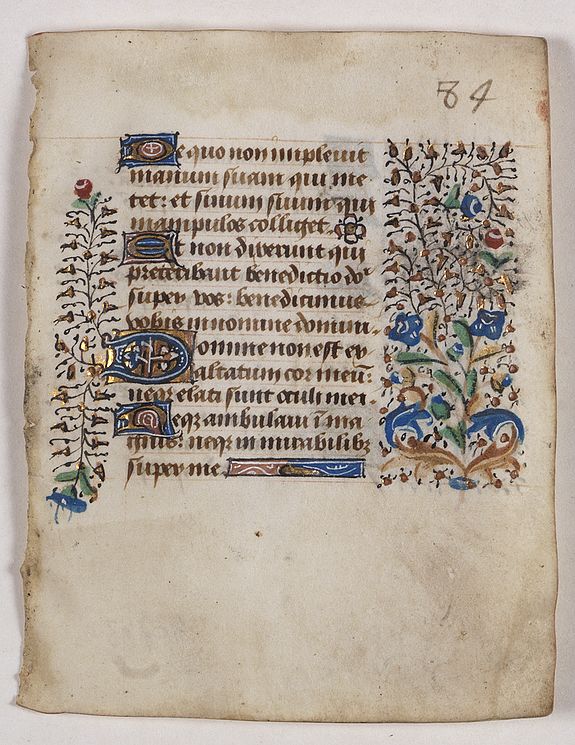 84
De quo non implevit
manum suam qui me
tet: et sinum suum qui
manipulos colliget.
Et non dixerunt qui
preteribant benedictio dñ
super vos: benedicimus
vobis in nomine domini.
Domine non est ex
altatum cor meū:
neqz elati sunt oculi mei.
Neqz ambulavi ī ma
gnis: neqz in mirabilibz
super me.